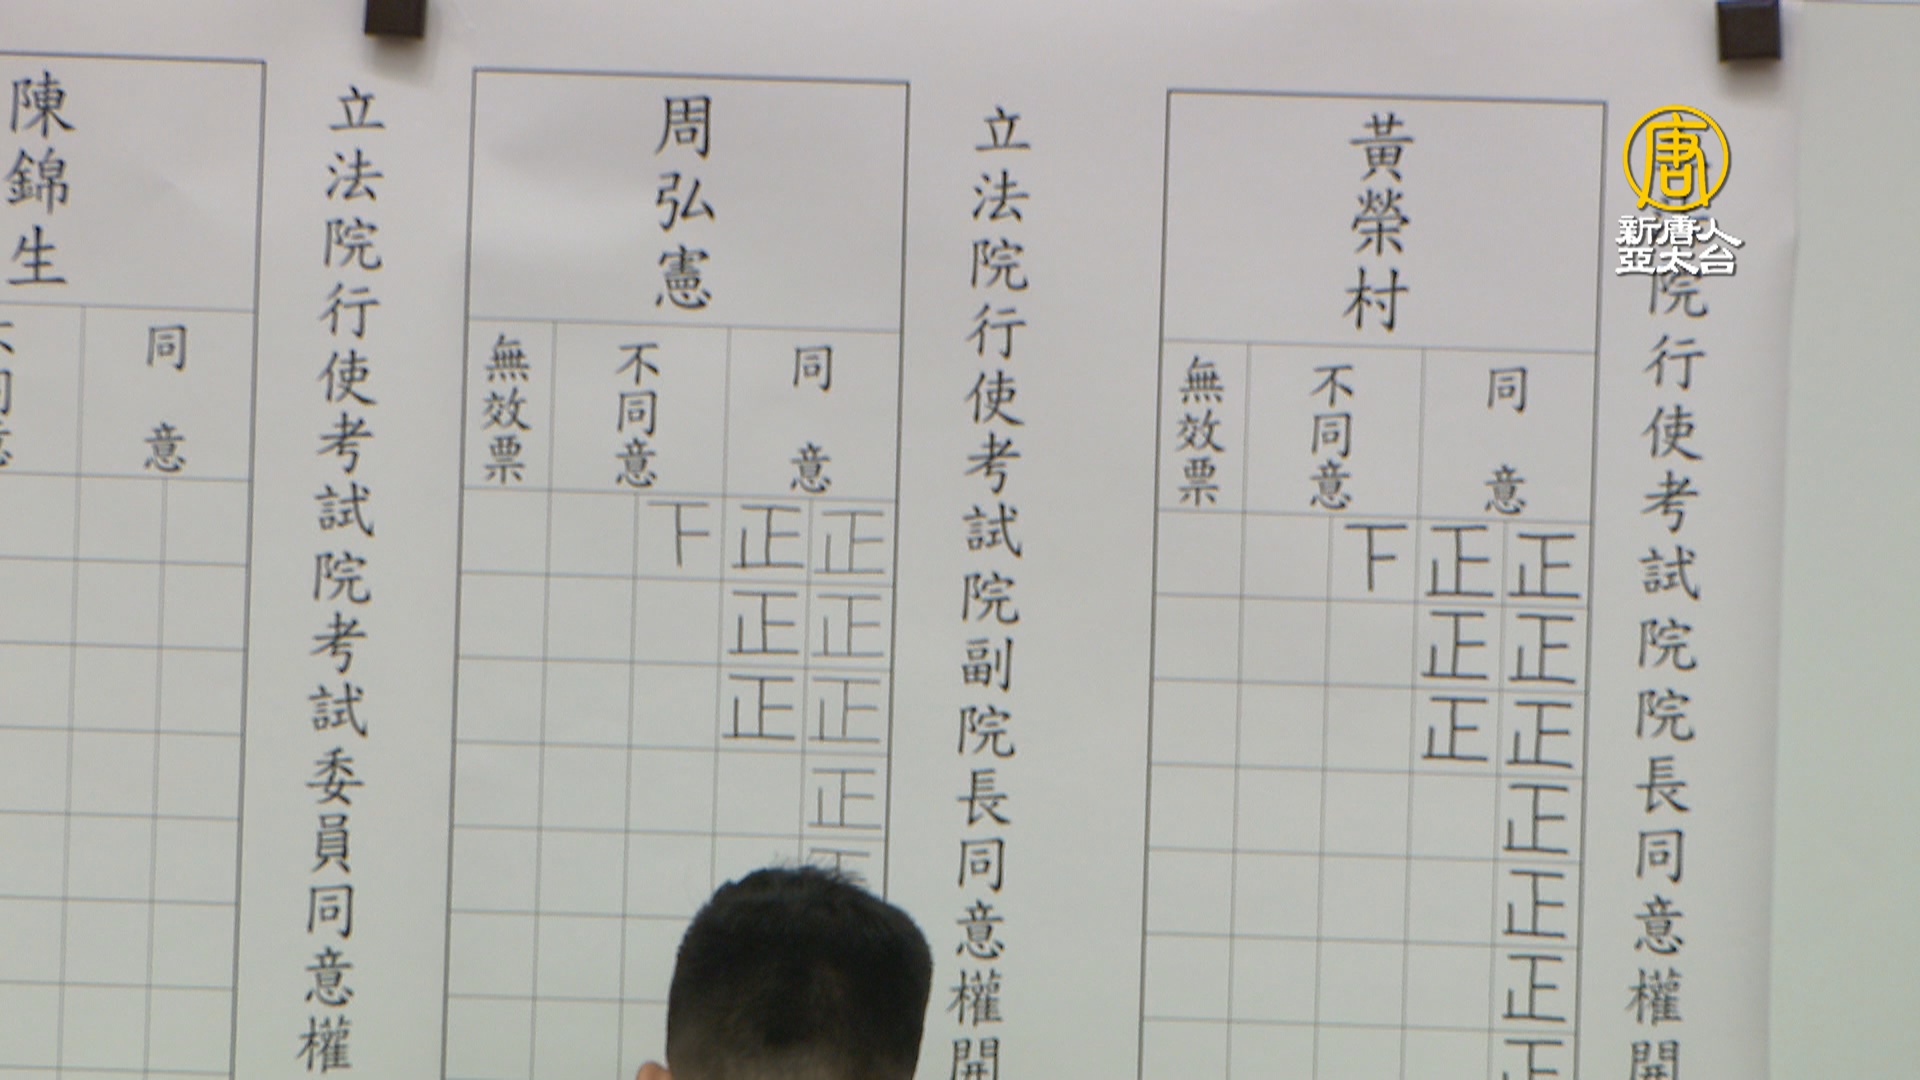 唐
新唐人
亞太台
院行使考試院院長同意權開
黃榮村
同意
不同意
無效票
正正下
正正
正正
正
正
正
立法院行使考試院副院長同意權開
周弘憲
同意
不同意
無效票
正正下
正正
正正
正
立法院行使考試院考試委員同意權
陳錦生
同意